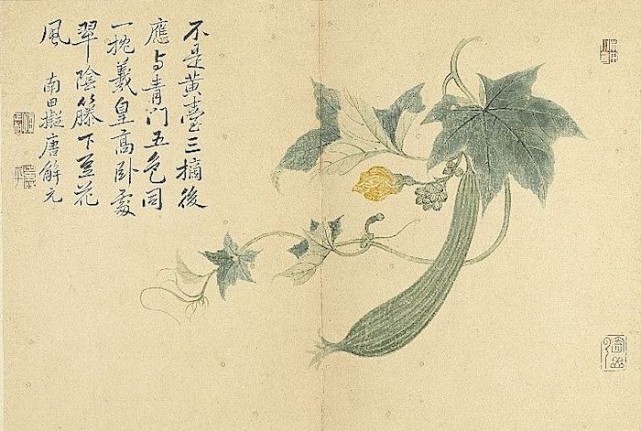 不是黄臺三摘後
應与青门五色同
一枕羲皇高卧處
翠陰籐下荳花
風 南田擬唐解元